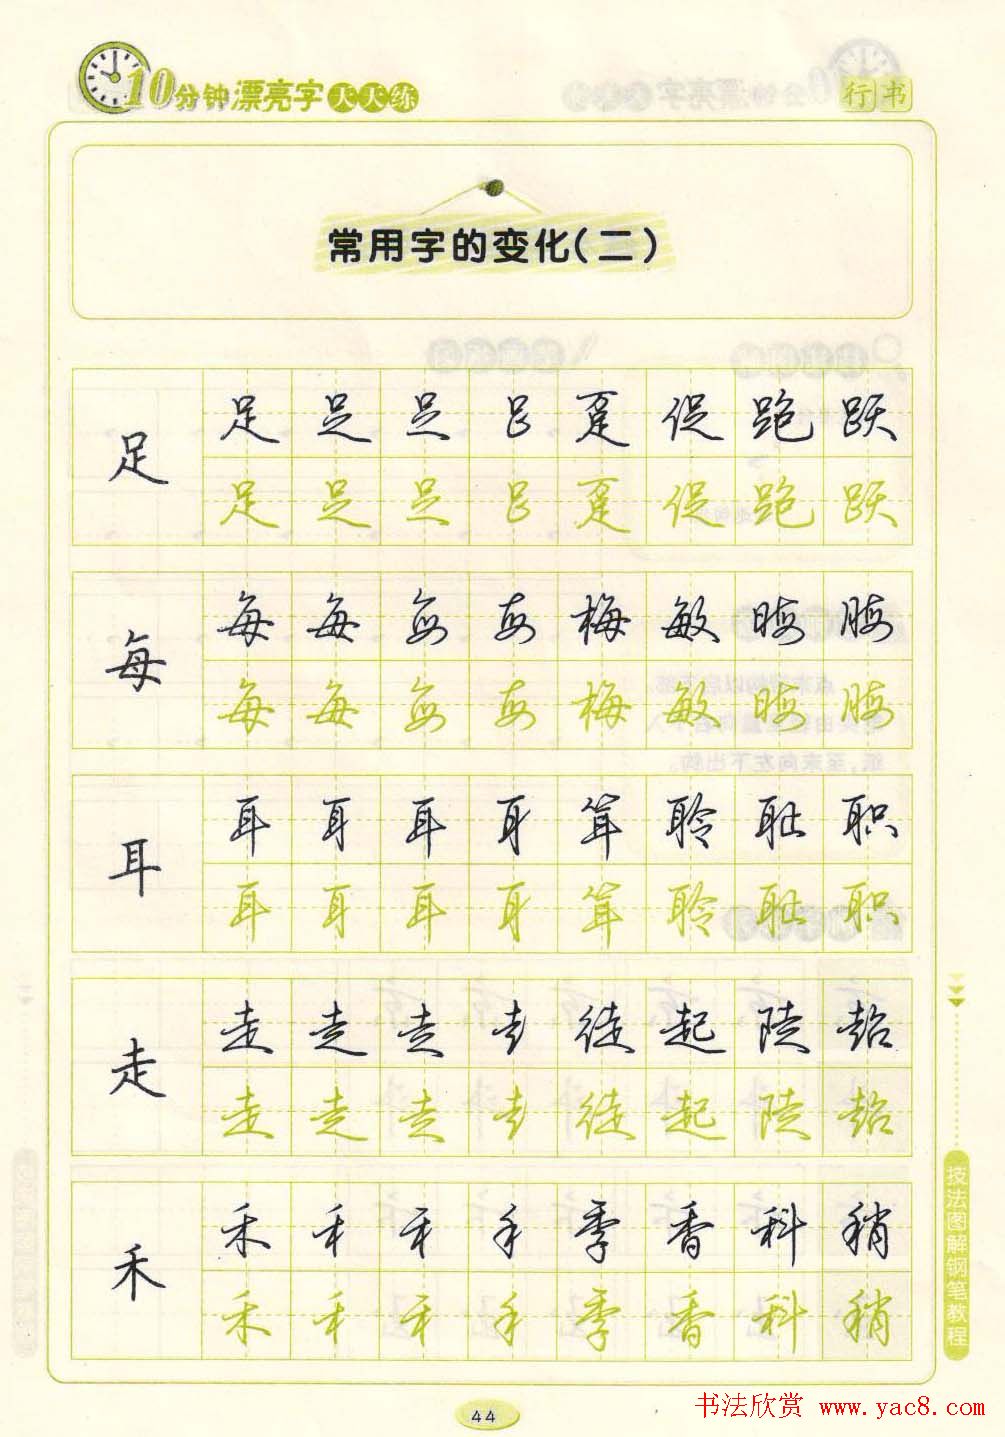 10分钟漂亮字天天练
行书
常用字的变化(二)
足 足 足 足 足 趸 促 跑 跃
足 足 足 足 趸 促 跑 跃
每 每 每 每 每 梅 敏 晦 脢
每 每 每 每 梅 敏 晦 脢
耳 耳 耳 耳 耳 茸 聆 耻 职
耳 耳 耳 耳 茸 聆 耻 职
走 走 走 走 走 徒 起 陡 超
走 走 走 走 徒 起 陡 超
禾 禾 禾 禾 禾 季 香 科 稍
禾 禾 禾 禾 季 香 科 稍
技法图解钢笔教程
44
书法欣赏 www.yac8.com